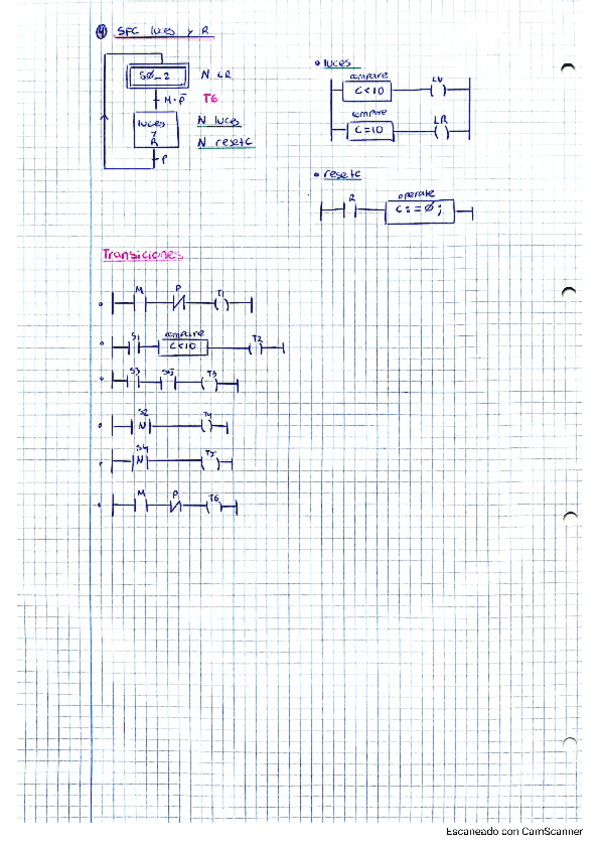 ④ SFC luces y R
SØ_2
N LR
M·P̅
T6
luces
y
R
N luces
N resetC
P
• luces
compare
C<10
LV
compare
C=10
LR
• resetC
R
operate
C:=Ø;
Transiciones
M P T1
S1 compare T2
C<10
S3 S5 T3
S2 T4
N
S4 T5
N
M P T6
Escaneado con CamScanner